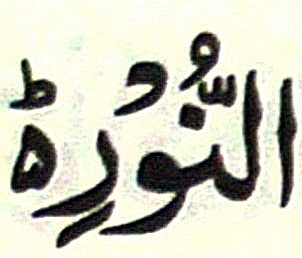 النُّوْرِ هؕ